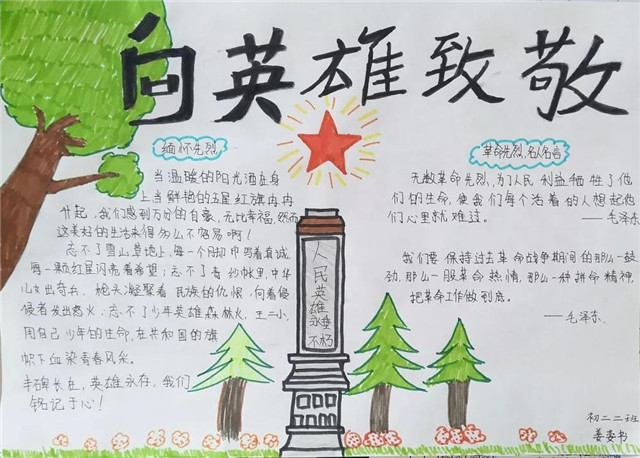 向英雄致敬
缅怀先烈
当温暖的阳光洒在身
上当鲜艳的五星红旗冉冉
升起,我们感到万分的自豪,无比幸福,然而
这美好的生活来得多么不容易啊!
忘不了雪山草地上,每一个 写着真诚,
每一颗红星闪亮着希望;忘不了青纱帐里,中华
儿女出奇兵,枪头凝聚着民族的仇恨,向着侵
者发出怒火;忘不了少年英雄森林火,王二小,
用自己少年的生命,在共和国的旗
帜下血染青春风采.
丰碑长在,英雄永存,我们
铭记于心!
人民英雄永垂不朽
革命先烈,名人名言
无数革命先烈,为了人民利益牺牲了他
们的生命,使我们每个活着的人想起他
们心里就难过。
——毛泽东
我们要保持过去革命战争期间的那么一股
劲,那么一股革命热情,那么一种拼命精神,
把革命工作做到底。
——毛泽东.
初二二班
姜委书